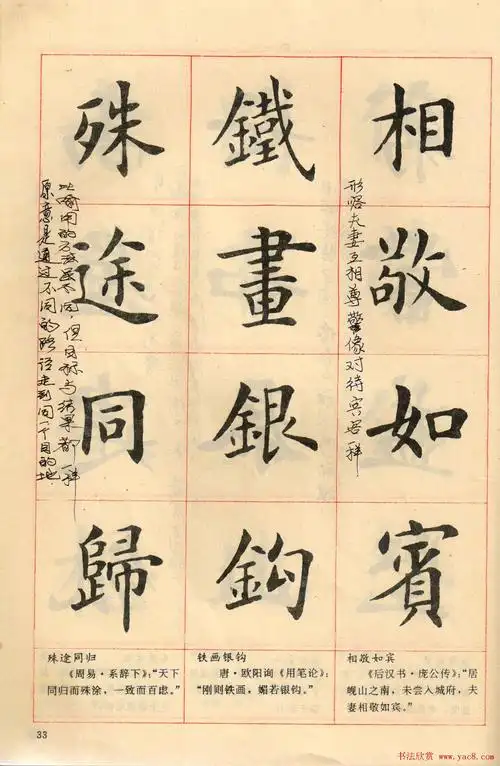 相敬如賓
形容夫妻互相尊警像对待宾客一样
鐵畫銀鈎
殊途同歸
比喻用的方法虽不同，但目标与结果都一样
原意是通过不同的路径走到同一个目的地
相敬如宾
《后汉书·庞公传》：“居
岘山之南，未尝入城府，夫
妻相敬如宾。”
铁画银钩
唐·欧阳询《用笔论》：
“刚则铁画，媚若银钩。”
殊途同归
《周易·系辞下》：“天下
同归而殊涂，一致而百虑。”
33
书法欣赏 www.yac8.com